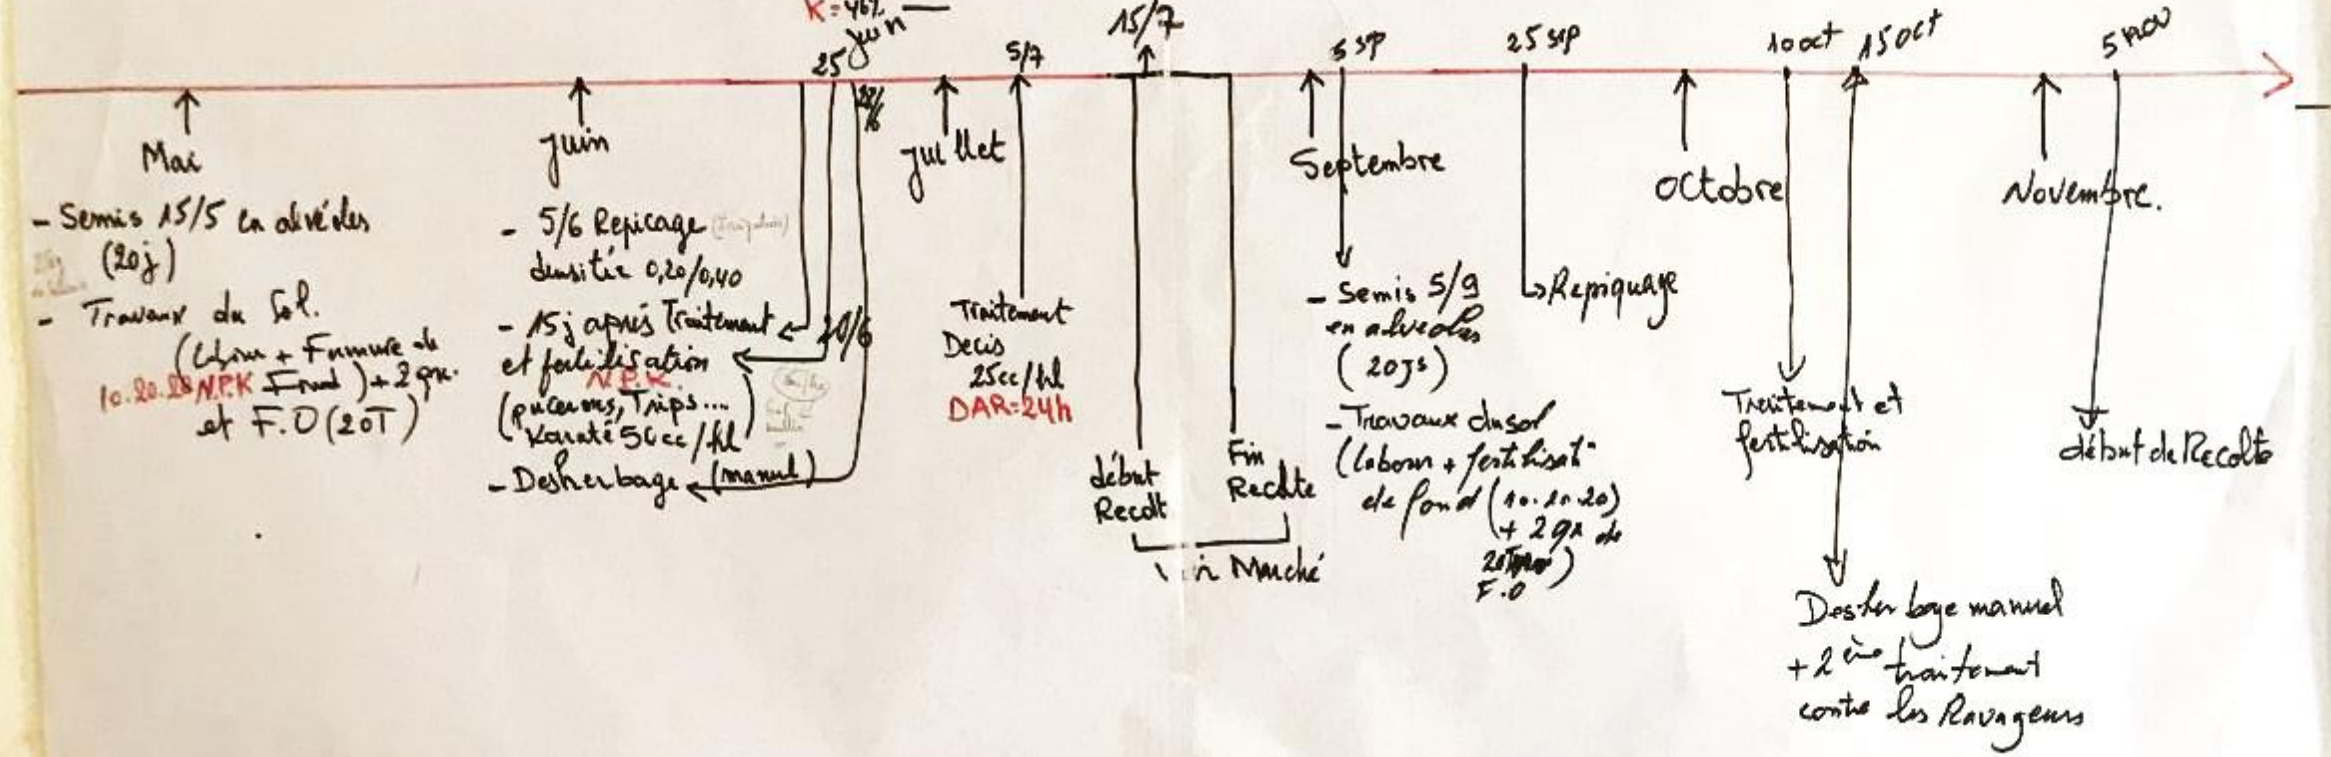 K = 46%
25 juin
5/7
15/7
5 sp
25 sep
10 oct
15 oct
5 nov
Mai
- Semis 15/5 en alvéoles
(20j)
- Travaux du Sol.
(labour + Fumure de
10.20.20 N.P.K Fond) + 2 qx.
et F.O (20T)
juin
- 5/6 Repicage
densitée 0,20/0,40
- 15j après Traitement
20/6
et fertilisation
N.P.K.
(pucerons, Trips...
Karaté 50cc/hl)
- Desherbage (manuel)
juillet
Traitement
Decis
25cc/hl
DAR=24h
début
Recolt
Fin
Recolte
Marché
Septembre
- Semis 5/9
en alveoles
(20js)
- Travaux du sol
(labour + fertilisat°
de fond (10.20.20)
+ 2 qx de
F.O
Repiquage
Octobre
Traitement et
fertilisation
Desherbage manuel
+ 2ème traitement
contre les Ravageurs
Novembre.
début de Recolte